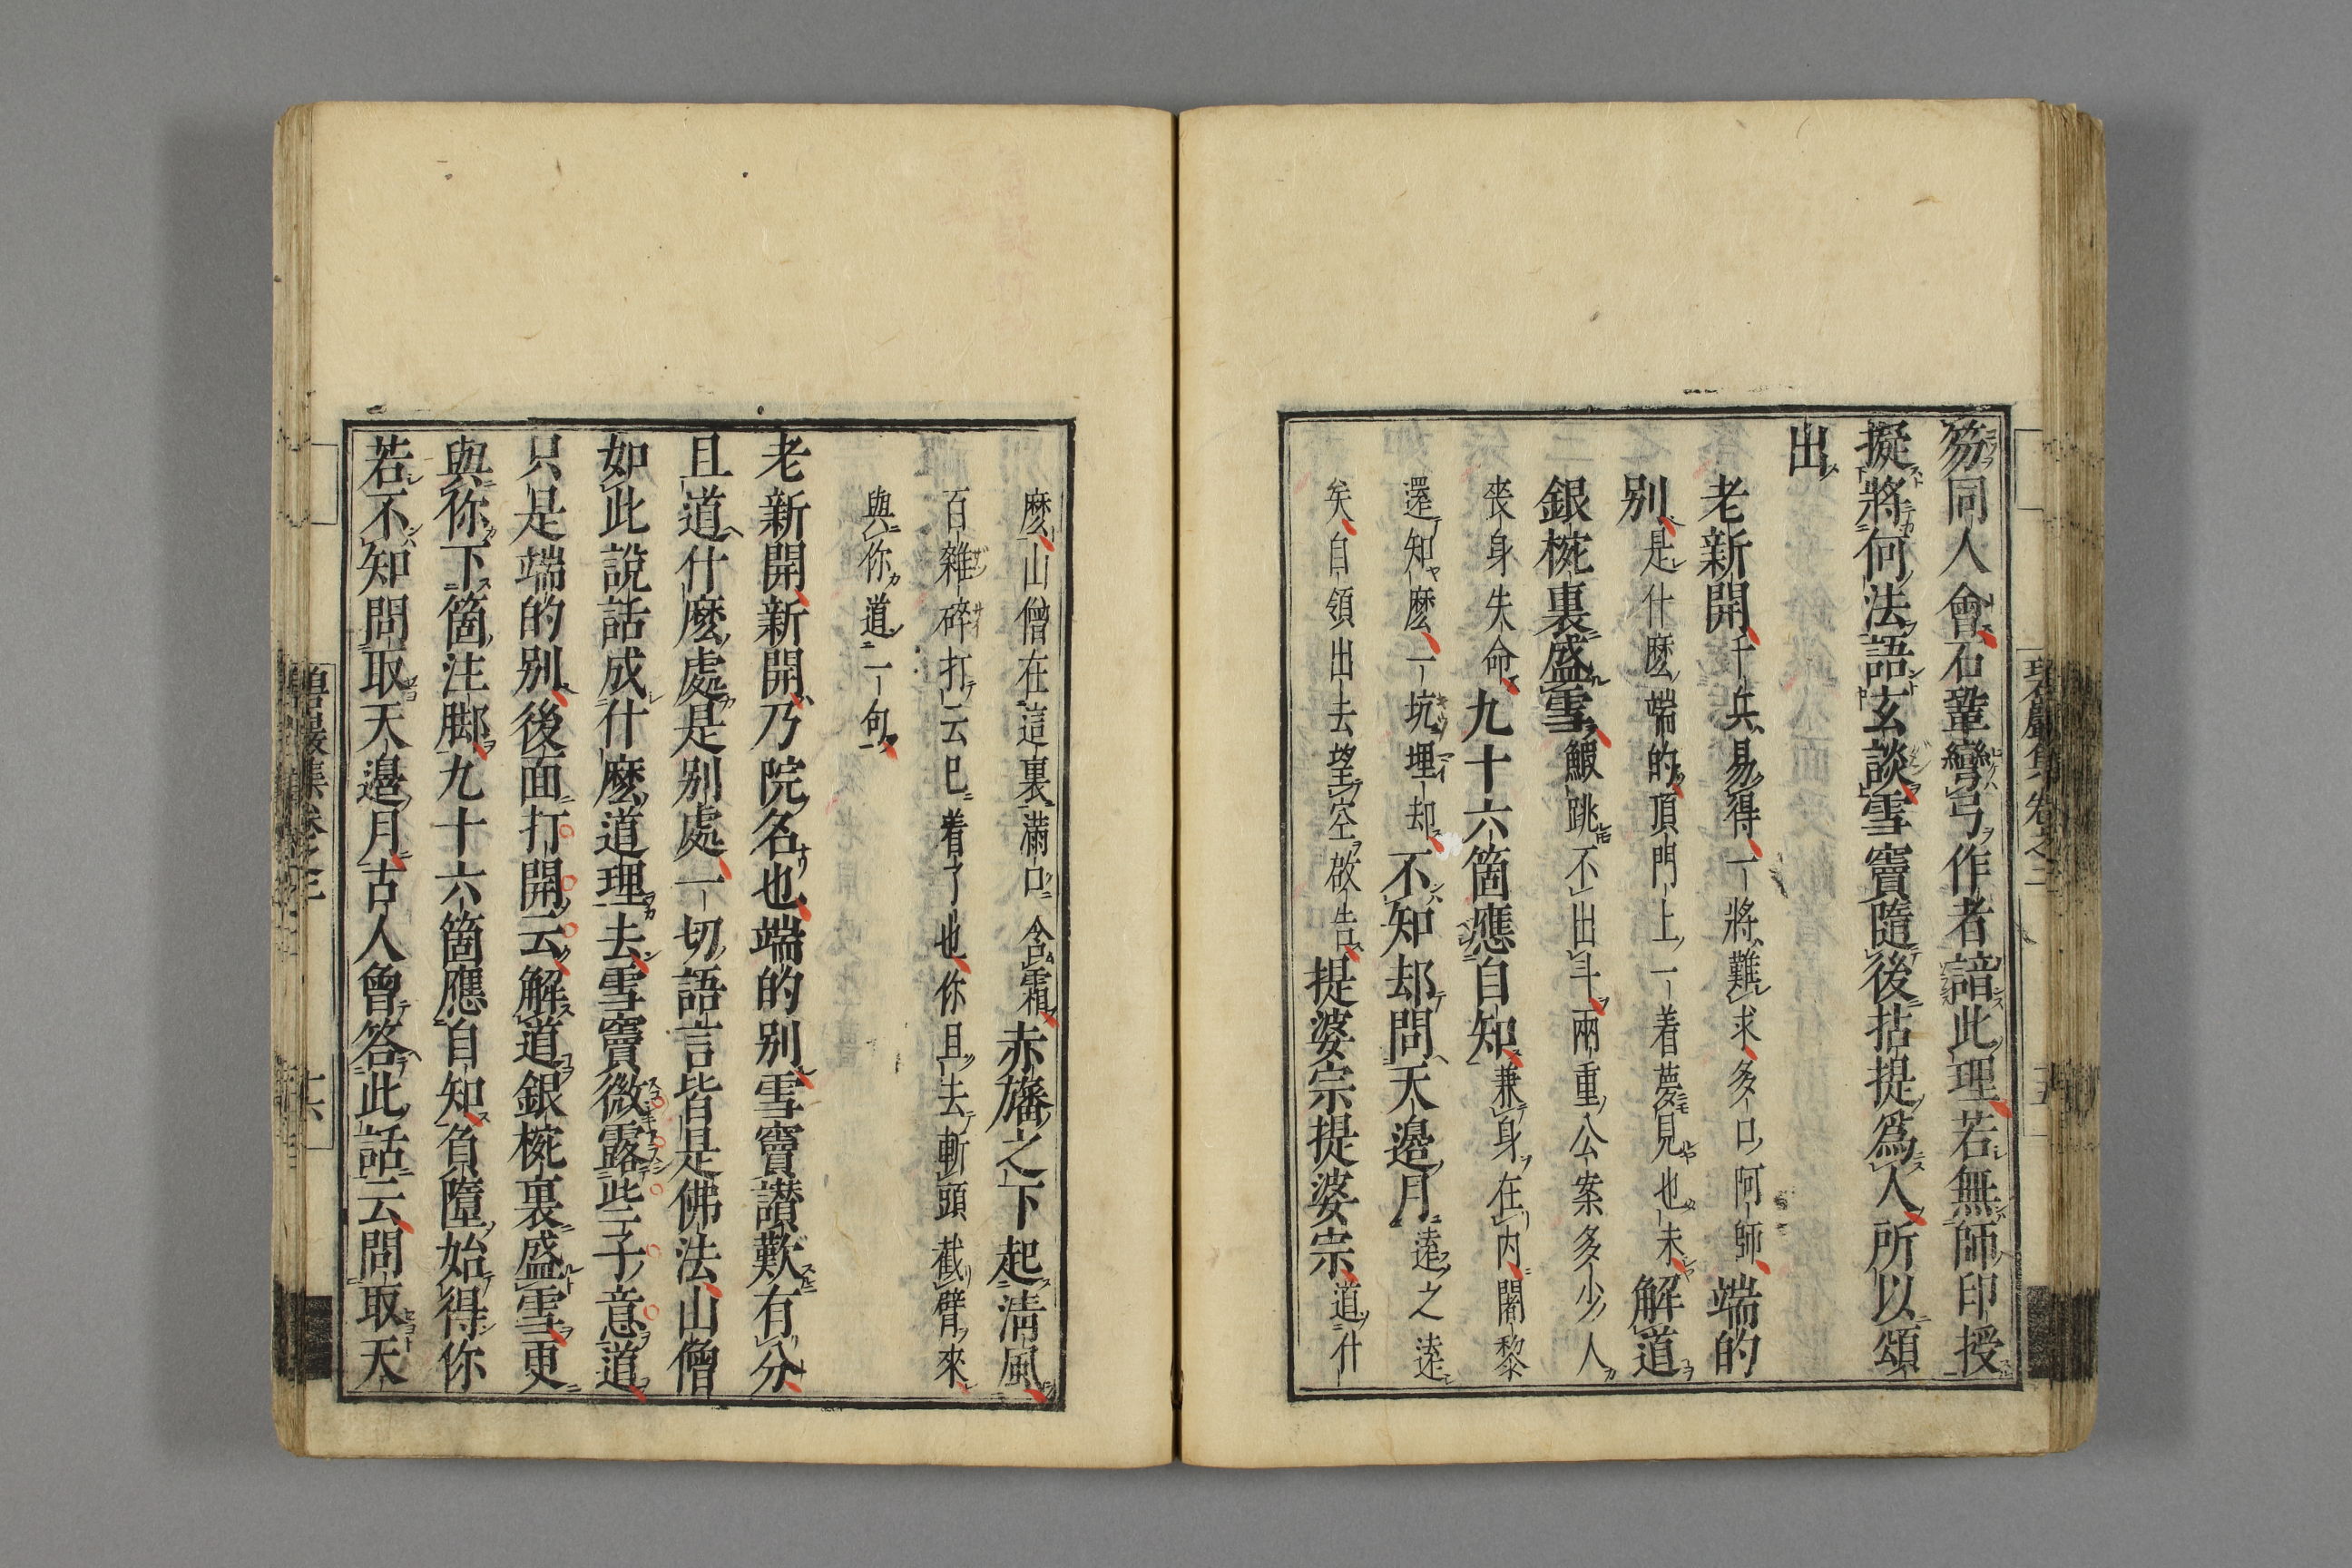 芴同人會石鞏彎弓作者諳此理若無師印授
擬將何法語玄談雪竇隨後拈提爲人所以頌
出
老新開千兵易得一將難求多口阿師端的
别是什麼端的頂門上一着夢見也未解道
銀椀裏盛雪鰕跳不出斗兩重公案多少人
喪身失命九十六箇應自知兼身在内闍黎
還知麼一坑埋却不知却問天邊月遠之遠
矣自領出去望空啟告提婆宗提婆宗道什
碧巖集卷之三
五
麼山僧在這裏滿口含霜赤旛之下起清風
百雜碎打云已着了也你且去斬頭截臂來
與你道一句
老新開新開乃院名也端的别雪竇讃歎有分
且道什麼處是别處一切語言皆是佛法山僧
如此說話成什麼道理去雪竇微露些子意道
只是端的别後面打開云解道銀椀裏盛雪更
與你下箇注脚九十六箇應自知負墮始得你
若不知問取天邊月古人會答此話云問取天
碧巖集卷之三
六